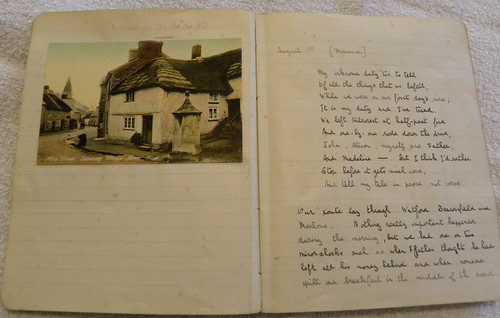 August 1st (Maurice)
My irksome duty 'tis to tell
Of all the things that us befell,
While we were on our first day's ride;
It is my duty and I've tried.
We left at half-past five
And one-by-one rode down the drive,
John, Alison, myself and Father,
And Madeline — But I think I'd rather
Stop before it gets much worse,
And tell my tale in prose not verse.
Our route lay through Watford Beaconsfield and
Marlow. Nothing really important happened
during the morning, but we had one or two
minor shocks such as when Father thought he had
left all his money behind and when
spilt our breakfast in the middle of the road